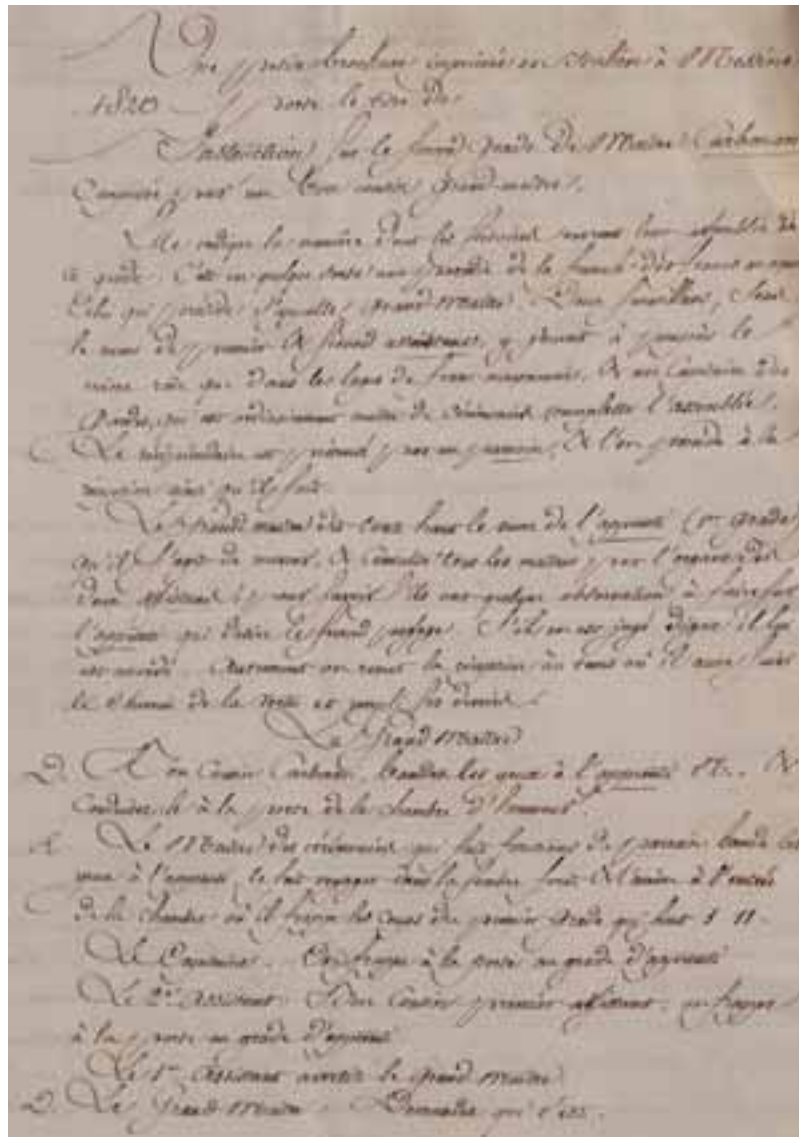 Une petite brochure imprimée en italien à Messine
1820 porte le titre de
Instruction sur le second grade de Maitre Carbonari
par un bon cousin grand-maitre.
Elle indique la manière dont les tiennent leur assemblée de
ce grade. C'est en quelque sorte une parodie de la
Celui qui préside s'appelle Grand Maitre. Deux surveillans, sous
le nom de premier & second assistant, y jouent à peu près le
même role que dans les loges de francs maçonnerie, & un
qui est ordinairement maitre de cérémonie complette l'assemblée.
Le récipiendaire est présenté par un parrain, & l'on procède à la
réception ainsi qu'il suit.
Le Grand maitre dit tout haut le nom de l'apprenti (1er grade)
qu'il s'agit de recevoir, & consulte tous les maitres par l'organe des
deux assistants pour savoir s'ils ont quelque observation à faire sur
l'apprenti qui desire le second grade. S'il en est jugé digne il lui
est accordé. Autrement on remet la réception au tems où il aura suivi
le chemin de la vertu et rempli ses devoirs.
Le Grand Maitre
D. Bon Cousin bandez les yeux à l'apprenti N.. &
conduisez le à la porte de la chambre d'honneur.
R. Le Maitre des cérémonies qui fait fonctions de parrain bande les
yeux à l'apprenti, le fait voyager dans la & l'amène à l'entrée
de la chambre où il frappe les coups du premier grade
Le . On frappe à la porte au grade d'apprenti
Le 2d assistant. Bon Cousin premier assistant, on frappe
à la porte au grade d'apprenti
Le 1er Assistant avertit le Grand Maitre
D. Le Grand Maitre. Demandez qui c'est.